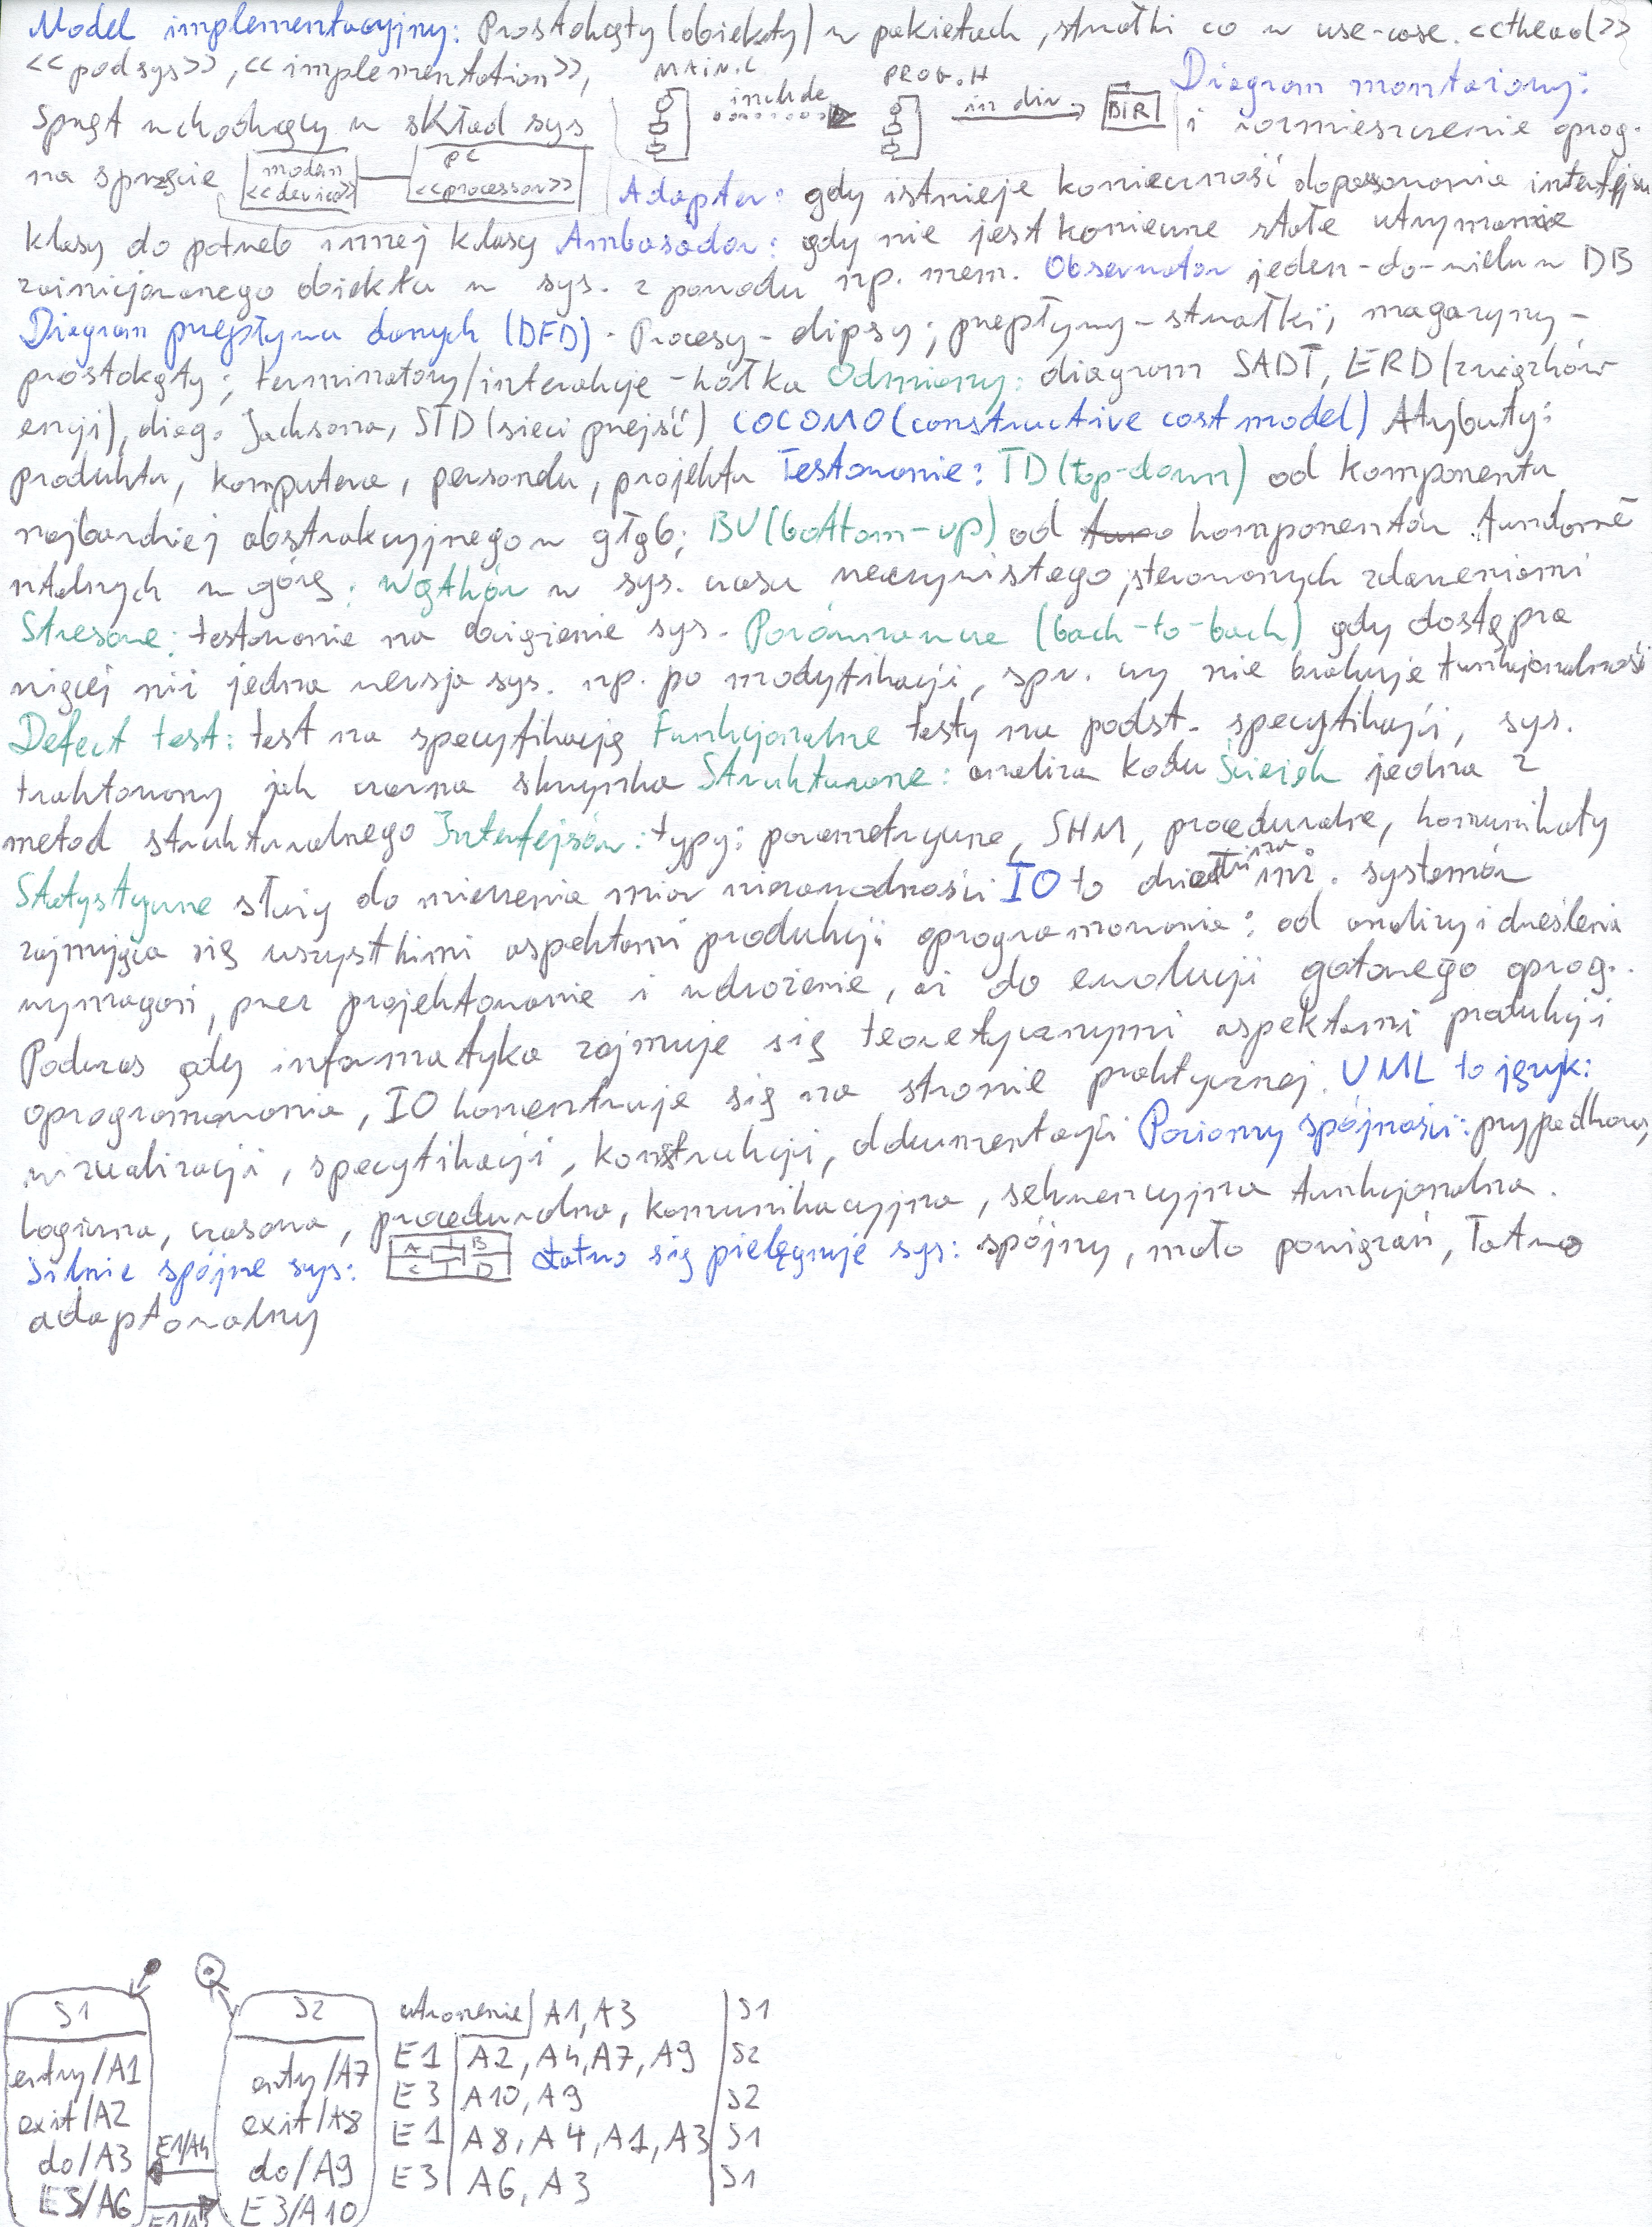 Model implementacyjny: Prostokąty (obiekty) w pakietach, strzałki co w use-case. <<thead>>
<<podsys>>, <<implementation>>,
MAIN.C
include
PROG.H
in div
DIR
Diagram montażowy:
Sprzęt wchodzący w skład sys
i rozmieszczenie oprog.
na sprzęcie
modem
<<device>>
PC
<<processor>>
Adapter: gdy istnieje konieczność dopasowania interfejsu
klasy do potrzeb innej klasy Ambasador: gdy nie jest konieczne stałe utrzymanie
zainicjowanego obiektu w sys. z powodu np. mem. Obserwator jeden-do-wielu w DB
Diagram przepływu danych (DFD). Procesy - elipsy; przepływy - strzałki; magazyny -
prostokąty; terminatory/interakcje - kółka Odmiany: diagram SADT, ERD (związków
encji), diag. Jacksona, STD (sieci przejść) COCOMO (constructive cost model) Atrybuty:
produktu, komputera, personelu, projektu Testowanie: TD (top-down) od komponentu
najbardziej abstrakcyjnego w głąb; BU (bottom-up) od komponentów fundame
ntalnych w górę; Wątków w sys. czasu rzeczywistego, sterowanych zdarzeniami
Stresowe: testowanie na obciążenie sys. Porównawcze (back-to-back) gdy dostępna
więcej niż jedna wersja sys. np. po modyfikacji, spr. czy nie brakuje funkcjonalności
Defect test: test na specyfikację Funkcjonalne testy na podst. specyfikacji, sys.
traktowany jak czarna skrzynka Strukturalne: analiza kodu Ścieżek jedna z
metod strukturalnego Interfejsów: typy: parametryczne, SHM, proceduralne, komunikaty
Statystyczne służy do mierzenia miar niezawodności IO to dziedzina inż. systemów
zajmująca się wszystkimi aspektami produkcji oprogramowania: od analizy i określenia
wymagań, przez projektowanie i wdrożenie, aż do ewolucji gotowego oprog.
Podczas gdy informatyka zajmuje się teoretycznymi aspektami produkcji
oprogramowania, IO koncentruje się na stronie praktycznej. UML to język:
wizualizacji, specyfikacji, konstrukcji, dokumentacji Poziomy spójności: przypadkowa,
logiczna, czasowa, proceduralna, komunikacyjna, sekwencyjna funkcjonalna.
Silnie spójne sys:
A B
C D
łatwo się pielęgnuje sys: spójny, mało powiązań, łatwo
adaptowalny
S1
entry/A1
exit/A2
do/A3
E3/A6
E1/A4
E1/A4
S2
entry/A7
exit/A8
do/A9
E3/A10
utworzenie | A1, A3 | S1
E1 | A2, A4, A7, A9 | S2
E3 | A10, A9 | S2
E1 | A8, A4, A1, A3 | S1
E3 | A6, A3 | S1